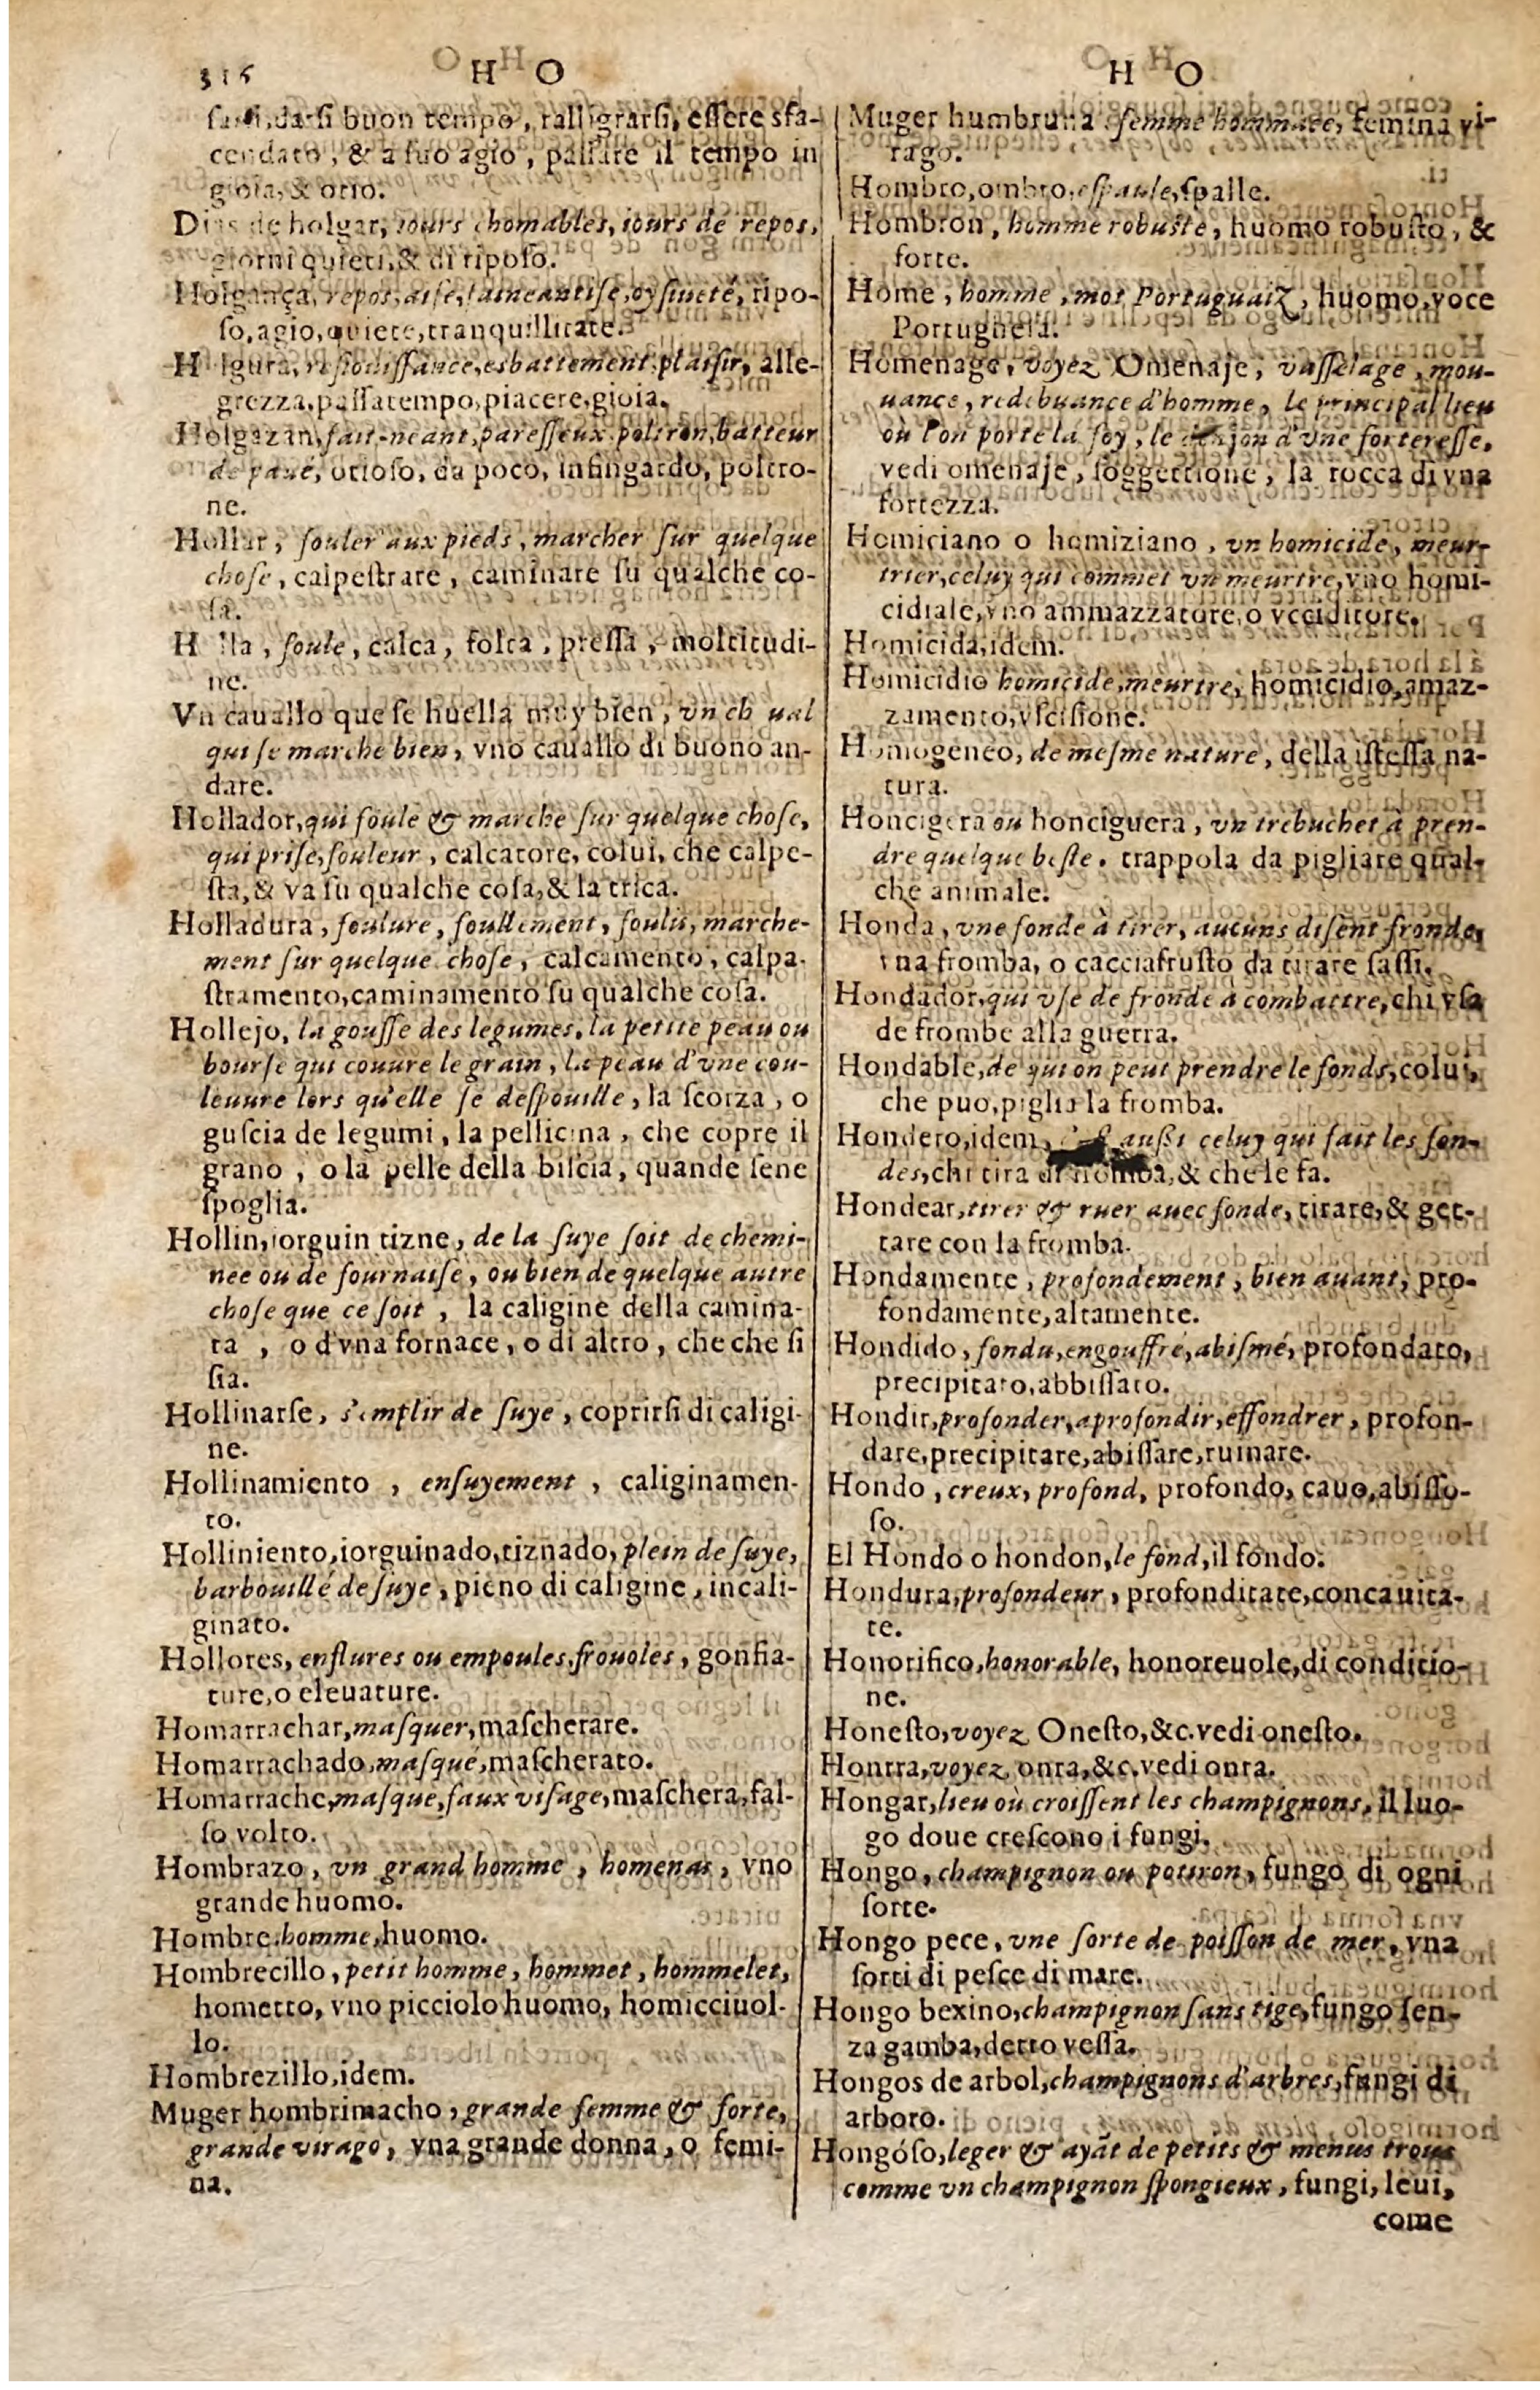 316
H O
ſarſi,darſi buon tempo, ralligrarſi, eſſere sfa-
cendato, & a ſuo agio, paſſare il tempo in
gioia, & otio.
Dias de holgar, iours chomables, iours de repos,
giorni quieti, & di ripoſo.
Holgança, repos, aiſe, faineantiſe, oyſiueté, ripo-
ſo, agio, quiete, tranquillitate.
Holgura, reſiouiſſance, esbattement, plaiſir, alle-
grezza, paſſatempo, piacere, gioia.
Holgazan, fait-neant, pareſſeux, poltron, batteur
de paué, otioſo, da poco, infingardo, poltro-
ne.
Hollar, fouler aux pieds, marcher ſur quelque
choſe, calpeſtrare, caminare ſu qualche co-
ſa.
Holla, foule, calca, folta, preſſa, moltitudi-
ne.
Vn cauallo que ſe huella muy bien, vn cheual
qui ſe marche bien, vno cauallo di buono an-
dare.
Hollador, qui foule & marche ſur quelque choſe,
qui priſe, fouleur, calcatore, colui, che calpe-
ſta, & va ſu qualche coſa, & la trita.
Holladura, foulure, foullement, foulis, marche-
ment ſur quelque choſe, calcamento, calpa-
ſtramento, caminamento ſu qualche coſa.
Hollejo, la gouſſe des legumes, la petite peau ou
bourſe qui couure le grain, la peau d'vne cou-
leuure lors qu'elle ſe deſpouille, la ſcorza, o
guſcia de legumi, la pellicina, che copre il
grano, o la pelle della biſcia, quande ſene
ſpoglia.
Hollin, iorguin tizne, de la ſuye ſoit de chemi-
nee ou de fournaiſe, ou bien de quelque autre
choſe que ce ſoit, la caligine della camina-
ta, o d'vna fornace, o di altro, che che ſi
ſia.
Hollinarſe, s'emplir de ſuye, coprirſi di caligi-
ne.
Hollinamiento, enſuyement, caliginamen-
to.
Holliniento, iorguinado, tiznado, plein de ſuye,
barbouillé de ſuye, pieno di caligine, incali-
ginato.
Hollores, enflures ou empoules, frouoles, gonfia-
ture, o eleuature.
Homarrachar, maſquer, maſcherare.
Homarrachado, maſqué, maſcherato.
Homarrache, maſque, faux viſage, maſchera, fal-
ſo volto.
Hombrazo, vn grand homme, homenas, vno
grande huomo.
Hombre, homme, huomo.
Hombrecillo, petit homme, hommet, hommelet,
hometto, vno picciolo huomo, homicciuol-
lo.
Hombrezillo, idem.
Muger hombrimacho, grande femme & forte,
grande virago, vna grande donna, o femi-
na.
H O
Muger humbruna femme hommace, femina vi-
rago.
Hombro, ombro, eſpaule, ſpalle.
Hombron, homme robuſte, huomo robuſto, &
forte.
Home, homme, mot Portuguaiz, huomo, voce
Portugheſa.
Homenage, voyez Omenaje, vaſſelage, mou-
uance, redebuance d'homme, le principal lieu
où l'on porte la foy, le donjon d'vne fortereſſe,
vedi omenaje, ſoggettione, la rocca di vna
fortezza.
Homiciano o homiziano, vn homicide, meur-
trier, celuy qui commet vn meurtre, vno homi-
cidiale, vno ammazzatore, o vcciditore.
Homicida, idem.
Homicidio homicide, meurtre, homicidio, amaz-
zamento, vſciſione.
Homogeneo, de meſme nature, della iſteſſa na-
tura.
Honcigera ou honciguera, vn trebuchet à pren-
dre quelque beſte. trappola da pigliare qual-
che animale.
Honda, vne fonde à tirer, aucuns diſent fronde,
vna fromba, o cacciafruſto da tirare ſaſſi.
Hondador, qui vſe de fronde à combattre, chi vſa
de frombe alla guerra.
Hondable, de qui on peut prendre le fonds, colui,
che puo, piglia la fromba.
Hondero, idem, außi celuy qui fait les fon-
des, chi tira & che le fa.
Hondear, tirer & ruer auec fonde, tirare, & get-
tare con la fromba.
Hondamente, profondement, bien auant, pro-
fondamente, altamente.
Hondido, fondu, engouffré, abiſmé, profondato,
precipitato, abbiſſato.
Hondir, profonder, aprofondir, effondrer, profon-
dare, precipitare, abiſſare, ruinare.
Hondo, creux, profond, profondo, cauo, abiſſo-
ſo.
El Hondo o hondon, le fond, il fondo.
Hondura, profondeur, profonditate, concauita-
te.
Honorifico, honorable, honoreuole, di conditio-
ne.
Honeſto, voyez Oneſto, &c. vedi oneſto.
Hontra, voyez onra, &c. vedi onra.
Hongar, lieu où croiſſent les champignons, il luo-
go doue creſcono i fungi.
Hongo, champignon ou potiron, fungo di ogni
ſorte.
Hongo pece, vne ſorte de poiſſon de mer, vna
ſorti di peſce di mare.
Hongo bexino, champignon ſans tige, fungo ſen-
za gamba, detto veſſa.
Hongos de arbol, champignons d'arbres, fungi di
arboro.
Hongóſo, leger & ayāt de petits & menus trous
comme vn champignon ſpongieux, fungi, leui,
come